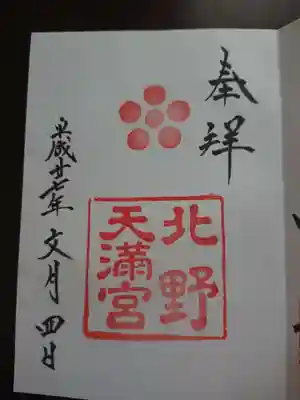 奉拝
北野
天満宮
平成廿七年 文月 四日